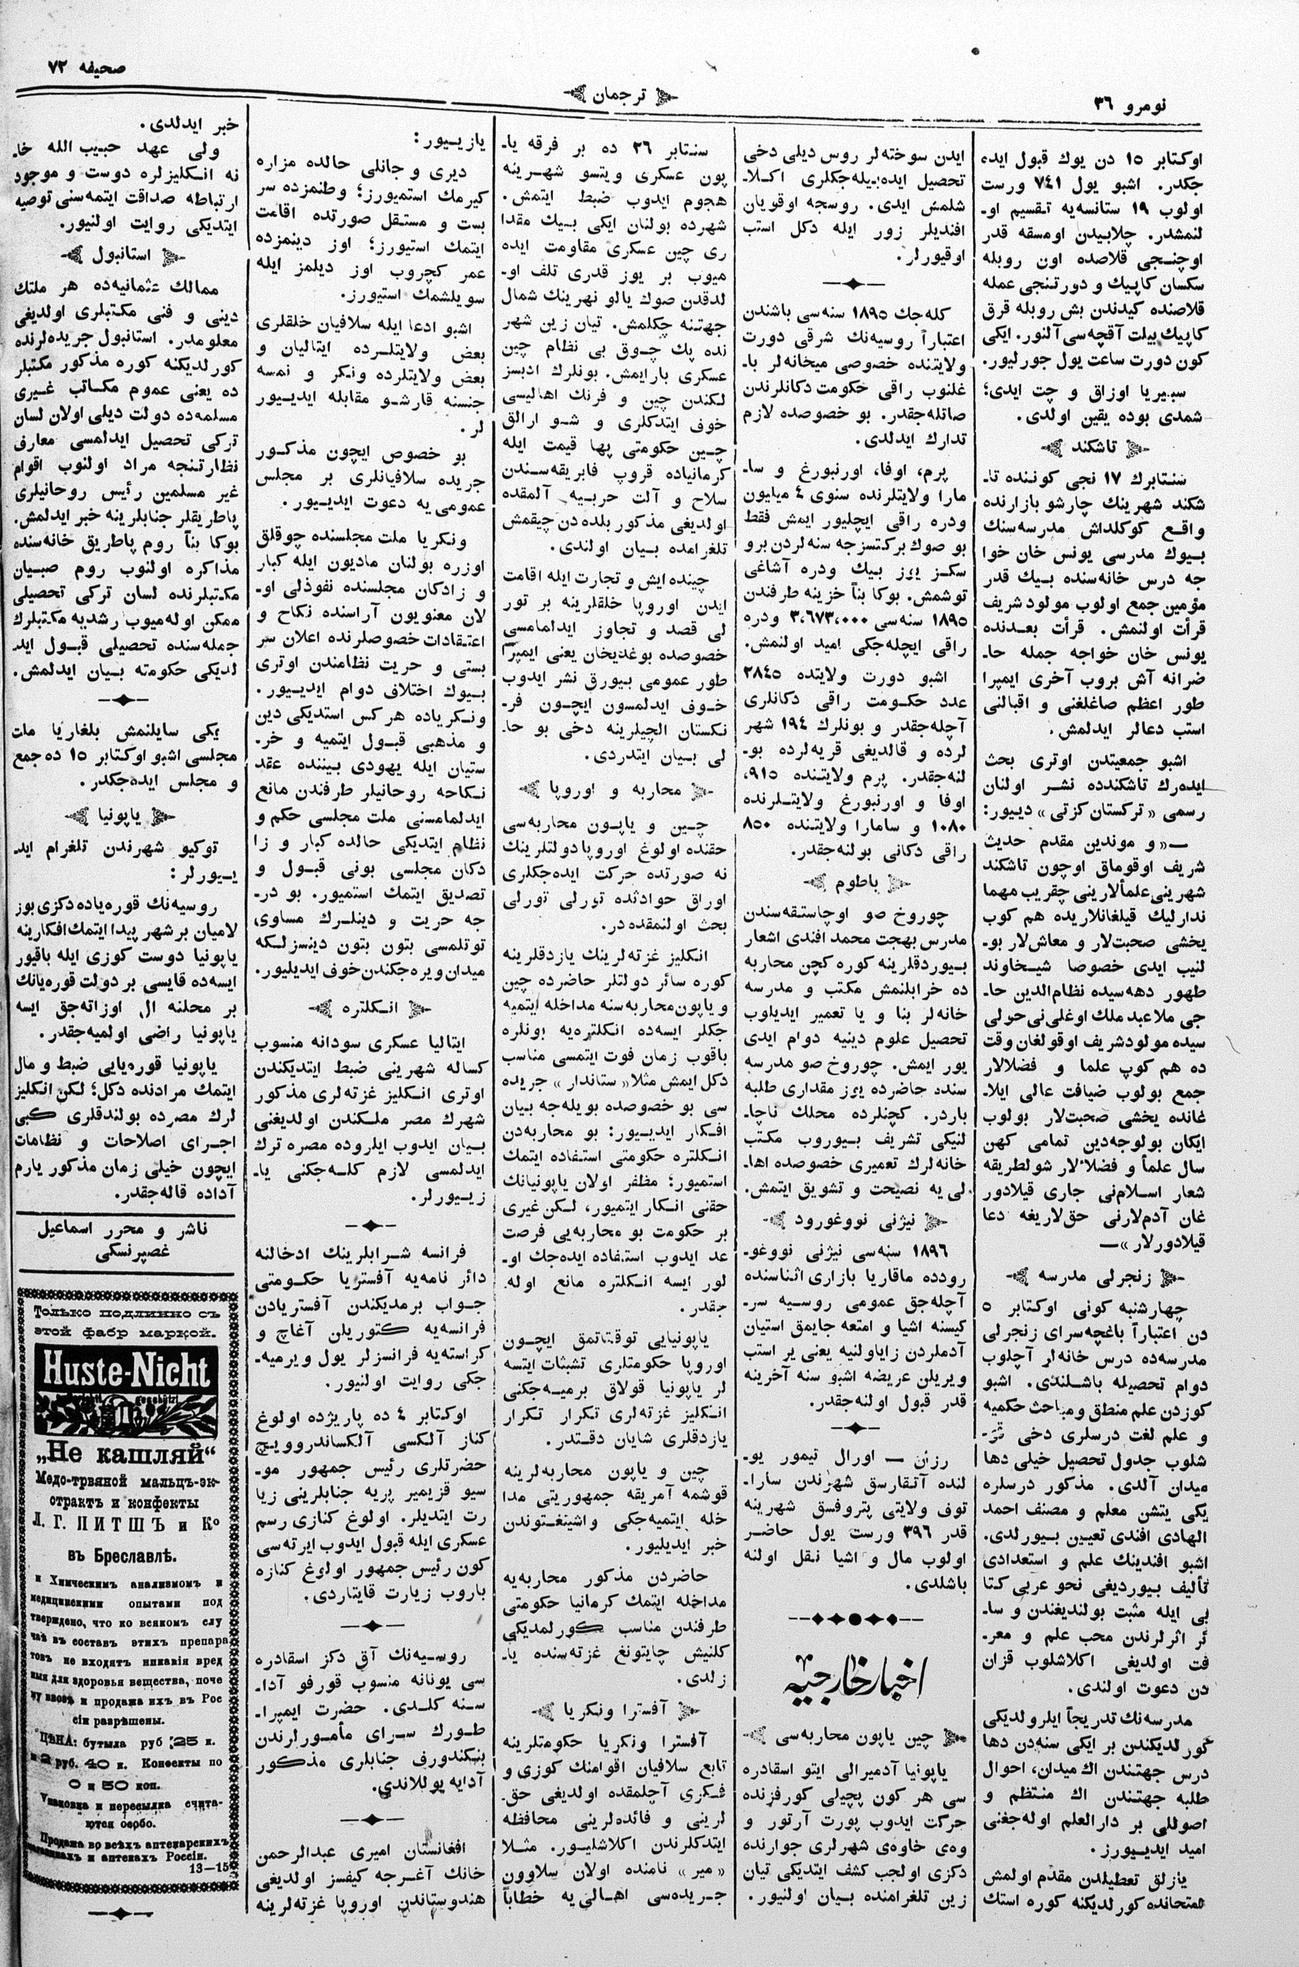 نومرو ٣٦
ترجمان
صحیفه ٧٢
اوکتابر ١٥ دن یوك قبول ایده
جکدر. اشبو یول ٧٤١ ورست
اولوب ١٩ ستانسه‌یه تقسیم او-
لنمشدر. چلابیدن اومسقه قدر
اوچنجی قلاصده اون روبله
سکسان کاپیك و دورتنجی عمله
قلاصنده کیدندن بش روبله قرق
کاپیك بیلت آقچه‌سی آلنور. ایکی
کون دورت ساعت یول جورلیور.
سیبریا اوزاق و چت ایدی؛
شمدی بوده یقین اولدی.
تاشکند
سنتابرك ١٧ نجی کوننده تا-
شکند شهرینك چارشو بازارنده
واقع کوکلداش مدرسه‌سنك
بیوك مدرسی یونس خان خوا
جه درس خانه‌سنده بیك قدر
مؤمین جمع اولوب مولود شریف
قرأت اولنمش. قرأت بعدنده
یونس خان خواجه جمله حا-
ضرانه آش بروب آخری ایمپرا
طور اعظم صاغلغنی و اقبالنی
استب دعالر ایدلمش.
اشبو جمعیتدن اوتری بحث
ایدەرك تاشکندده نشر اولنان
رسمی «ترکستان کزتی» دیـیور:
—«و موندین مقدم حدیث
شریف اوقوماق اوچون تاشکند
شهرینی علمألارینی چقریب مهما
ندارلیك قیلغانلاریده هم کوب
یخشی صحبت‌لار و معاش‌لار بو-
لنیب ایدی خصوصا شیخاوند
طهور دهه‌سیده نظام‌الدین حا-
جی ملا عبد ملك اوغلی نی حولی
سیده مولود شریف اوقولغان وقت
ده هم کوپ علما و فضلالار
جمع بولوب ضیافت عالی ایلا-
غانده یخشی صحبت‌لار بولوب
ایکان بولوجه‌دین تمامی کهن
سال علمأ و فضلالار شولطریقه
شعار اسلام‌نی جاری قیلادور
غان آدم‌لارنی حق‌لاریغه دعا
قیلادورلار»—
زنجرلی مدرسه
چهارشنبه کونی اوکتابر ٥
دن اعتباراً باغچه‌سرای زنجرلی
مدرسه‌ده درس خانه‌لر آچلوب
دوام تحصیله باشلندی. اشبو
کوزدن علم منطق و مباحث حکمیه
و علم لغت درسلری دخی قو-
شلوب جدول تحصیل خیلی دها
میدان آلدی. مذکور درسلره
یکی یتشن معلم و مصنف احمد
الهادی افندی تعیین بیورلدی.
اشبو افندینك علم و استعدادی
تألیف بیوردیغی نحو عربی کتا
بی ایله مثبت بولندیغندن و سا-
ئر اثرلرندن محب علم و معر-
فت اولدیغی اکلاشلوب قزان
دن دعوت اولندی.
مدرسه‌نك تدریجاً ایلرولدیکی
کورلدیکندن بر ایکی سنه‌دن دها
درس جهتندن اك میدان، احوال
طلبه جهتندن اك منتظم و
اصوللی بر دارالعلم اوله‌جغنی
امید ایدیـیورز.
یازلق تعطیلدن مقدم اولمش
امتحانده کورلدیکنه کوره استك
ایدن سوخته‌لر روس دیلی دخی
تحصیل ایده‌بیله‌جکلری اکلا-
شلمش ایدی. روسجه اوقویان
افندیلر زور ایله دکل استب
اوقیورلر.
کله‌جك ١٨٩٥ سنه‌سی باشندن
اعتباراً روسیه‌نك شرقی دورت
ولایتنده خصوصی میخانه‌لر با-
غلنوب راقی حکومت دکانلرندن
صاتله‌جقدر. بو خصوصده لازم
تدارك ایدلدی.
پرم، اوفا، اورنبورغ و سا-
مارا ولایتلرنده سنوی ٤ میلیون
ودره راقی ایچلیور ایمش فقط
بو صوك برکتسزجه سنه‌لردن برو
سکز یوز بیك ودره آشاغی
توشمش. بوکا بنأ خزینه طرفندن
١٨٩٥ سنه‌سی ٣،٦٧٣،٠٠٠ ودره
راقی ایچله‌جکی امید اولنمش.
اشبو دورت ولایتده ٢٨٤٥
عدد حکومت راقی دکانلری
آچله‌جقدر و بونلرك ١٩٤ شهر
لرده و قالدیغی قریه‌لرده بو-
لنه‌جقدر. پرم ولایتنده ٩١٥،
اوفا و اورنبورغ ولایتـلرنده
١٠٨٠ و سامارا ولایتنده ٨٥٠
راقی دکانی بولنه‌جقدر.
باطوم
چوروخ صو اوچاستقه‌سندن
مدرس بهجت محمد افندی اشعار
بیوردقلرینه کوره کچن محاربه
ده خرابلنمش مکتب و مدرسه
خانه‌لر بنا و یا تعمیر ایدیلوب
تحصیل علوم دینیه دوام ایدی
یور ایمش. چوروخ صو مدرسه
سنده حاضرده یوز مقداری طلبه
باردر. کچنلرده محلك ناچا-
لنیکی تشریف بیوروب مکتب
خانه‌لرك تعمیری خصوصده اها-
لی یه نصیحت و تشویق ایتمش.
نیژنی نووغورود
١٨٩٦ سنه‌سی نیژنی نووغو-
رودده ماقاریا بازاری اثناسنده
آچله‌جق عمومی روسیه سر-
کیسنه اشیا و امتعه جایمق استیان
آدملردن زایاولنیه یعنی یر استب
ویریلن عریضه اشبو سنه آخرینه
قدر قبول اولنه‌جقدر.
رزان — اورال تیمور یو-
لنده آتقارسق شهرندن سارا-
توف ولایتی پتروفسق شهرینه
قدر ٣٩٦ ورست یول حاضر
اولوب مال و اشیا نقل اولنه
باشلدی.
اخبار خارجیه
چین یاپون محاربه‌سی
یاپونیا آدمیرالی ایتو اسقادره
سی هر کون پچیلی کورفزنده
حرکت ایدوب پورت آرتور و
وەی خاوەی شهرلری جوارنده
دکزی اولجب کشف ایتدیکی تیان
زین تلغرامنده بیان اولنیور.
سنتابر ٢٦ ده بر فرقه یا-
پون عسکری ویتسو شهرینه
هجوم ایدوب ضبط ایتمش.
شهرده بولنان ایکی بیك مقدا
ری چین عسکری مقاومت ایده
میوب بر یوز قدری تلف او-
لدقدن صوك یالو نهرینك شمال
جهتنه چکلمش. تیان زین شهر
نده پك چوق بی نظام چین
عسکری بار ایمش. بونلرك ادبسز
لکندن چین و فرنك اهالیسی
خوف ایتدکلری و شو ارالق
چین حکومتی پها قیمت ایله
کرمانیاده قروپ فابریقه‌سندن
سلاح و آلت حربیه آلمقده
اولدیغی مذکور بلده دن چیقمش
تلغرامده بیان اولندی.
چینده ایش و تجارت ایله اقامت
ایدن اوروپا خلقلرینه بر تور
لی قصد و تجاوز ایدلمامسی
خصوصده بوغدیخان یعنی ایمپرا
طور عمومی بیورق نشر ایدوب
خوف ایدلمسون ایچون فر-
نکستان الچیلرینه دخی بو حا-
لی بیان ایتدردی.
محاربه و اوروپا
چین و یاپون محاربه‌سی
حقنده اولوغ اوروپا دولتلرینك
نه صورتده حرکت ایده‌جکلری
اوراق حوادثده تورلی تورلی
بحث اولنمقده در.
انکلیز غزته‌لرینك یازدقلرینه
کوره سائر دولتلر حاضرده چین
و یاپون محاربه‌سنه مداخله ایتمیه
جکلر ایسه‌ده انکلتره‌یه بونلره
باقوب زمان فوت ایتمسی مناسب
دکل ایمش مثلا «ستاندار» جریده
سی بو خصوصده بویله‌جه بیان
افکار ایدیـیور: بو محاربه‌دن
انکلتره حکومتی استفاده ایتمك
استمیور؛ مظفر اولان یاپونیانك
حقنی انکار ایتمیور، لکن غیری
بر حکومت بو محاربه‌یی فرصت
عد ایدوب استفاده ایده‌جك او-
لور ایسه انکلتره مانع اوله
جقدر.
یاپونیایی توقتاتمق ایچون
اوروپا حکومتلری تشبثات ایتسه
لر یاپونیا قولاق برمیه‌جکنی
انکلیز غزته‌لری تکرار تکرار
یازدقلری شایان دقتدر.
چین و یاپون محاربه‌لرینه
قوشمه آمریقه جمهوریتی مدا
خله ایتمیه‌جکی واشینغتوندن
خبر ایدیلیور.
حاضردن مذکور محاربه‌یه
مداخله ایتمك کرمانیا حکومتی
طرفندن مناسب کورلمدیکی
کلنیش چایتونغ غزته‌سنده یا-
زلدی.
آفسترا ونکریا
آفسترا ونکریا حکومتلرینه
تابع سلافیان اقوامنك کوزی و
فکری آچلمقده اولدیغی حق-
لرینی و فائده‌لرینی محافظه
ایتدکلرندن اکلاشلیور. مثلا
«میر» نامنده اولان سلاوون
جریده‌سی اهالی‌یه خطاباً
یازیـیور:
دیری و جانلی حالده مزاره
کیرمك استمیورز؛ وطنمزده سر
بست و مستقل صورتده اقامت
ایتمك استیورز؛ اوز دینمزده
عمر کچروب اوز دیلمز ایله
سویلشمك استیورز.
اشبو ادعا ایله سلافیان خلقلری
بعض ولایتلرده ایتالیان و
بعض ولایتلرده ونکر و نمسه
جنسنه قارشو مقابله ایدیـیور
لر.
بو خصوص ایچون مذکور
جریده سلافیانلری بر مجلس
عمومی یه دعوت ایدیـیور.
ونکریا ملت مجلسنده چوقلق
اوزره بولنان مادیون ایله کبار
و زادکان مجلسنده نفوذلی او-
لان معنویون آراسنده نکاح و
اعتقادات خصوصلرنده اعلان سر
بستی و حریت نظامندن اوتری
بیوك اختلاف دوام ایدیـیور.
ونکریاده هر کس استدیکی دین
و مذهبی قبول ایتمیه و خر-
ستیان ایله یهودی بیننده عقد
نکاحه روحانیلر طرفندن مانع
ایدلمامسنی ملت مجلسی حکم و
نظام ایتدیکی حالده کبار و زا
دکان مجلسی بونی قبول و
تصدیق ایتمك استمیور. بو در-
جه حریت و دینلرك مساوی
توتلمسی بتون بتون دینسزلکه
میدان ویره‌جکندن خوف ایدیلیور.
انکلتره
ایتالیا عسکری سودانه منسوب
کساله شهرینی ضبط ایتدیکندن
اوتری انکلیز غزته‌لری مذکور
شهرك مصر ملکندن اولدیغنی
بیان ایدوب ایلروده مصره ترك
ایدلمسی لازم کله‌جکنی یا-
زیـیورلر.
فرانسه شرابلرینك ادخالنه
دائر نامه‌یه آفستریا حکومتی
جواب برمدیکندن آفستریادن
فرانسه‌یه کتوریلن آغاچ و
کراسته‌یه فرانسزلر یول ویرمیه-
جکی روایت اولنیور.
اوکتابر ٤ ده پاریژده اولوغ
کناز آلکسی آلکساندروویچ
حضرتلری رئیس جمهور مو-
سیو قزیمیر پریه جنابلرینی زیا
رت ایتدیلر. اولوغ کنازی رسم
عسکری ایله قبول ایدوب ایرته‌سی
کون رئیس جمهور اولوغ کنازه
باروب زیارت قایتاردی.
روسیه‌نك آق دکز اسقادره
سی یونانه منسوب قورفو آدا-
سنه کلدی. حضرت ایمپرا-
طورك سرای مأمورلرندن
بنکندورف جنابلری مذکور
آدایه یوللاندی.
افغانستان امیری عبدالرحمن
خانك آغرجه کیفسز اولدیغی
هندوستاندن اوروپا غزته‌لرینه
خبر ایدلدی.
ولی عهد حبیب الله خا-
نه انکلیزلره دوست و موجود
ارتباطه صداقت ایتمه‌سنی توصیه
ایتدیکی روایت اولنیور.
استانبول
ممالك عثمانیه‌ده هر ملتك
دینی و فنی مکتبلری اولدیغی
معلومدر. استانبول جریده‌لرنده
کورلدیکنه کوره مذکور مکتبلر
ده یعنی عموم مکاتب غیری
مسلمه‌ده دولت دیلی اولان لسان
ترکی تحصیل ایدلمسی معارف
نظارتنجه مراد اولنوب اقوام
غیر مسلمین رئیس روحانیلری
پاطریقلر جنابلرینه خبر ایدلمش.
بوکا بنأ روم پاطریق خانه‌سنده
مذاکره اولنوب روم صبیان
مکتبلرنده لسان ترکی تحصیلی
ممکن اوله‌میوب رشدیه مکتبلرك
جمله‌سنده تحصیلی قبول اید
لدیکی حکومته بیان ایدلمش.
یکی سایلنمش بلغاریا ملت
مجلسی اشبو اوکتابر ١٥ ده جمع
و مجلس ایده‌جکدر.
یاپونیا
توکیو شهرندن تلغرام اید-
یـیورلر:
روسیه‌نك قوره‌یاده دکزی بوز
لامیان بر شهر پیدا ایتمك افکارینه
یاپونیا دوست کوزی ایله باقیور
ایسه‌ده قایسی بر دولت قوره‌یانك
بر محلنه ال اوزاته‌جق ایسه
یاپونیا راضی اولمیه‌جقدر.
یاپونیا قوره‌یایی ضبط و مال
ایتمك مرادنده دکل؛ لکن انکلیز
لرك مصرده بولندقلری کبی
اجرای اصلاحات و نظامات
ایچون خیلی زمان مذکور یارم
آداده قاله‌جقدر.
ناشر و محرر اسماعیل
غصپرنسکی
Только подлинно съ
этой фабр маркой.
Huste-Nicht
„Не кашляй“
Медо-трвяной мальцъ-эк-
страктъ и конфекты
Л. Г. ПИТШЪ и Ко
въ Бреславлѣ.
и Химическимъ анализомъ и
медицинскими опытами под
тверждено, что ко всякомъ слу
чаѣ въ составъ этихъ препара
товъ не входятъ никакія вред
ныя для здоровья вещества, поче
му ввозъ и продажа ихъ въ Рос
сіи разрѣшены.
ЦѢНА: бутыла руб 25 к.
и 2 руб. 40 к. Конфекты по
30 и 50 коп.
Упаковка и пересылка счита-
ются особо.
Продажа во всѣхъ аптекарскихъ
магазинахъ и аптекахъ Россіи.
13—15